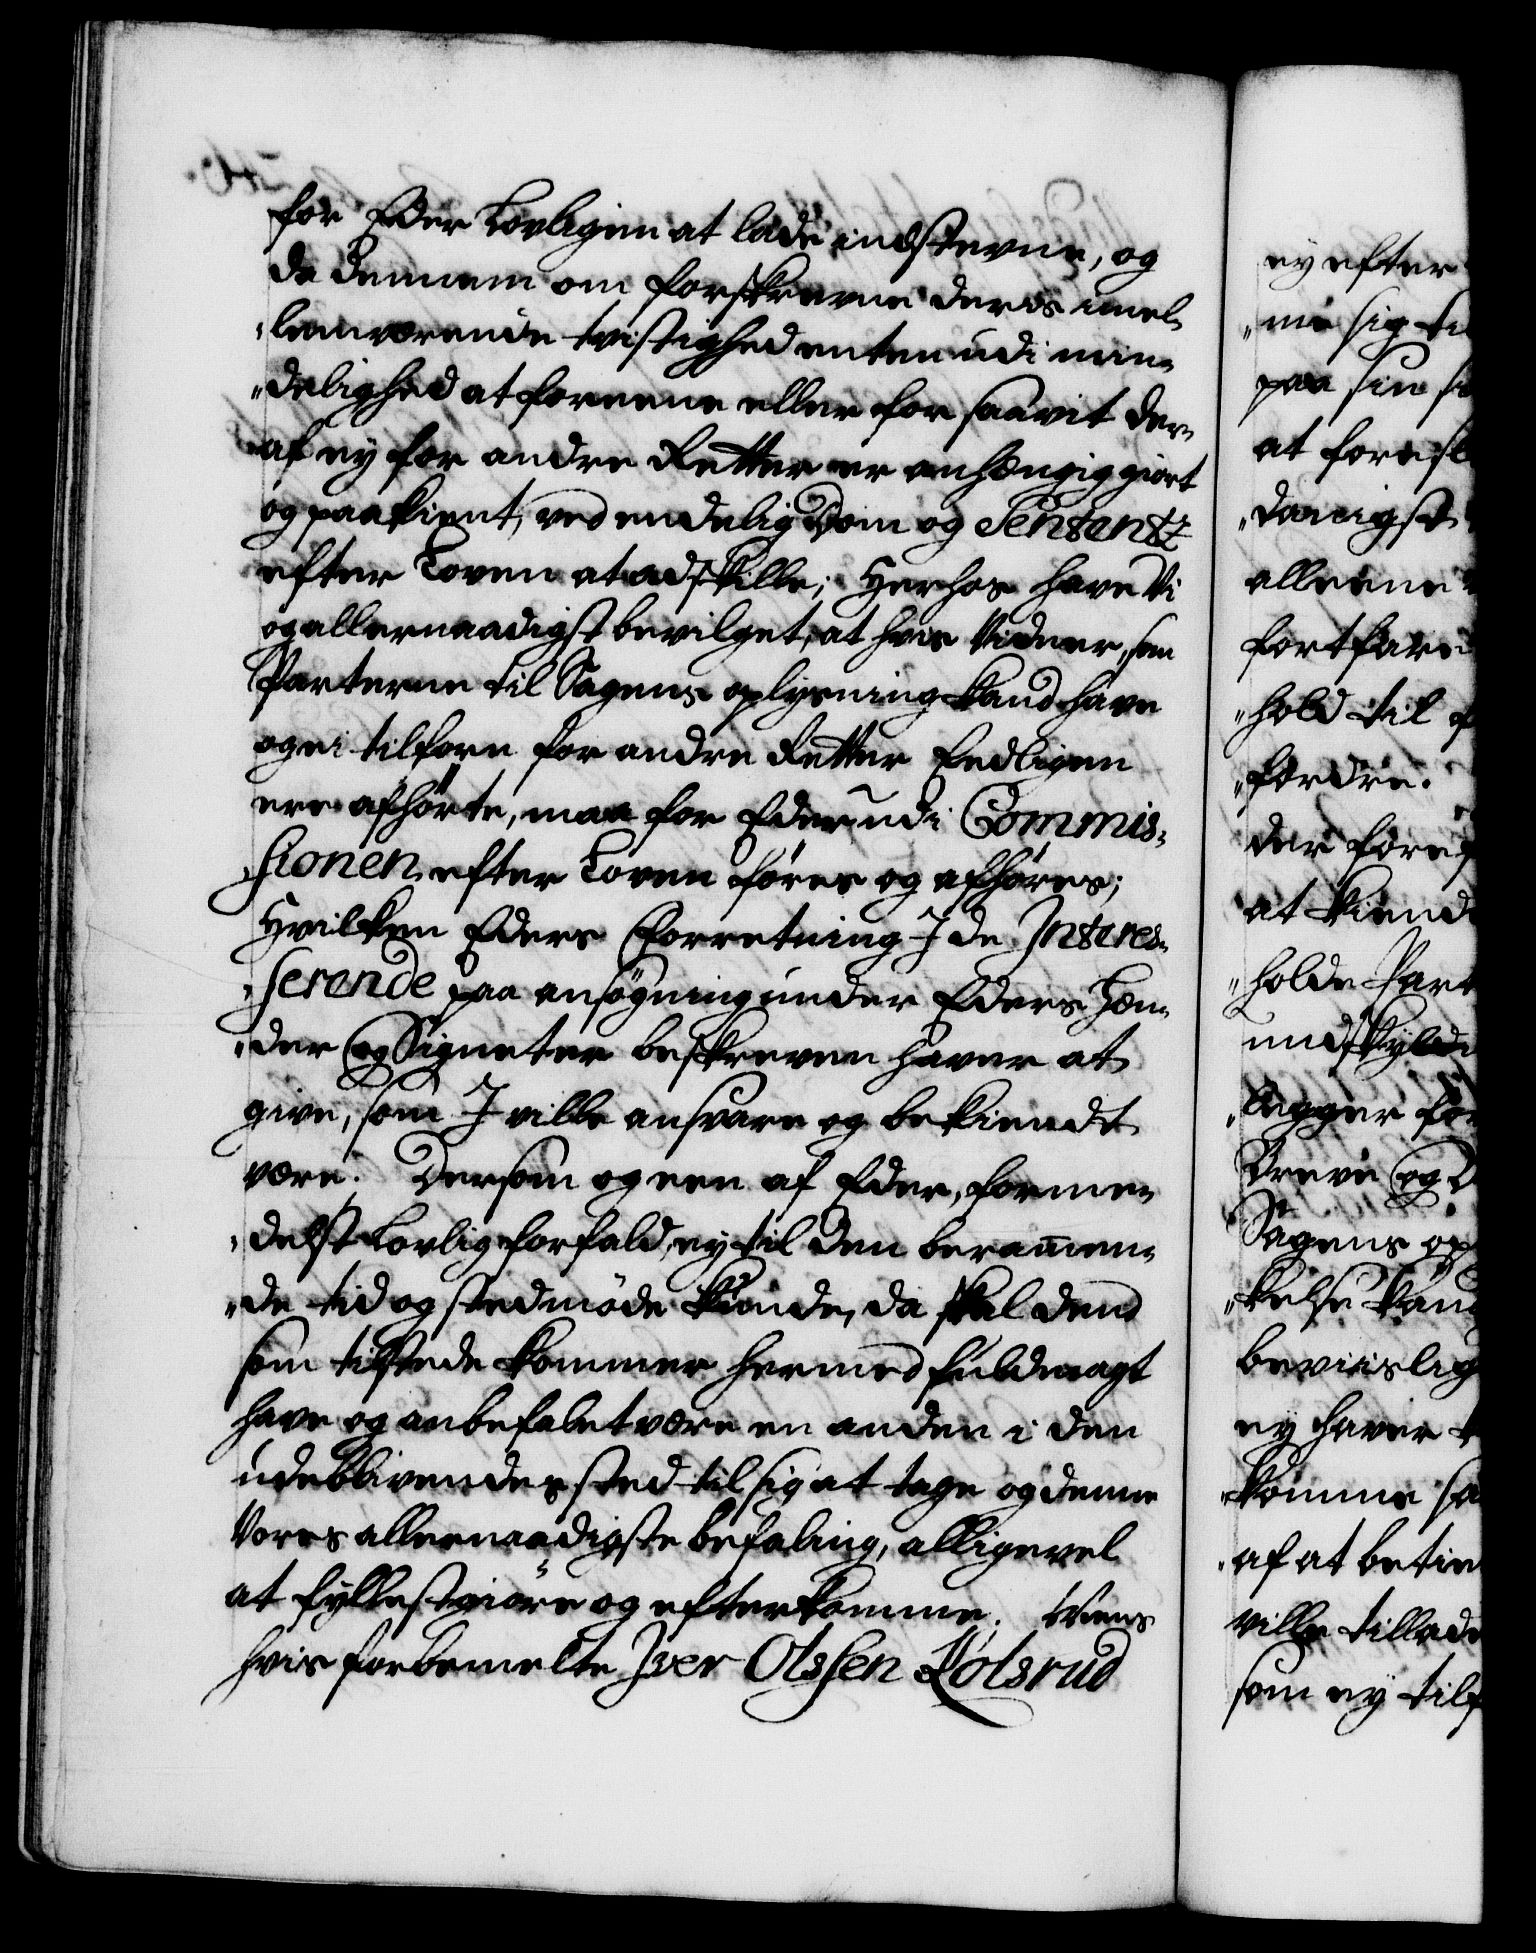 for Eder Lovligen at lade indstevne, og
da dennem om forskrevne deris imel-
lemværende tvistighed enten udi min-
delighed at foreene eller for saavit der-
af ey for andre Retter er anhængig giort
og paakient, ved endelig Dom og Sentents
efter Loven at adskille; Herhos have Vi
og allernaadigst bevilget, at hvis Vidner, som
Parterne til Sagens oplysning kand have
og ei tilforn for andre Retter Eedligen
ere afhørte, maa for Eder udi Commis-
sionen efter Loven føres og afhøres;
Hvilken Eders Forretning I de Interes-
serende paa ansøgning under Eders Hæn-
der og Signeter beskreven haver at
give, som I ville ansvare og bekiendt
være. Dersom og een af Eder, forme-
delst Lovlig forfald, ey til den beramen-
de tid og sted møde kunde, da skal dend
som tilstede kommer hermed fuldmagt
have og anbefalet være en anden i den
udeblivendes sted til sig at tage og denne
Vores allernaadigste befaling, alligevel
at fyllestgiøre og efterkomme. Mens
hvis forbemelte Iver Olssen Kolsrud
ey efter
paa sin
allerene
hold til
fordre.
at kiende
holde Part
undskyld
Breve og
Sagens op
kelse kand
beviislig
ey haver
komme
af at betie
ville tillade
som ey tilf